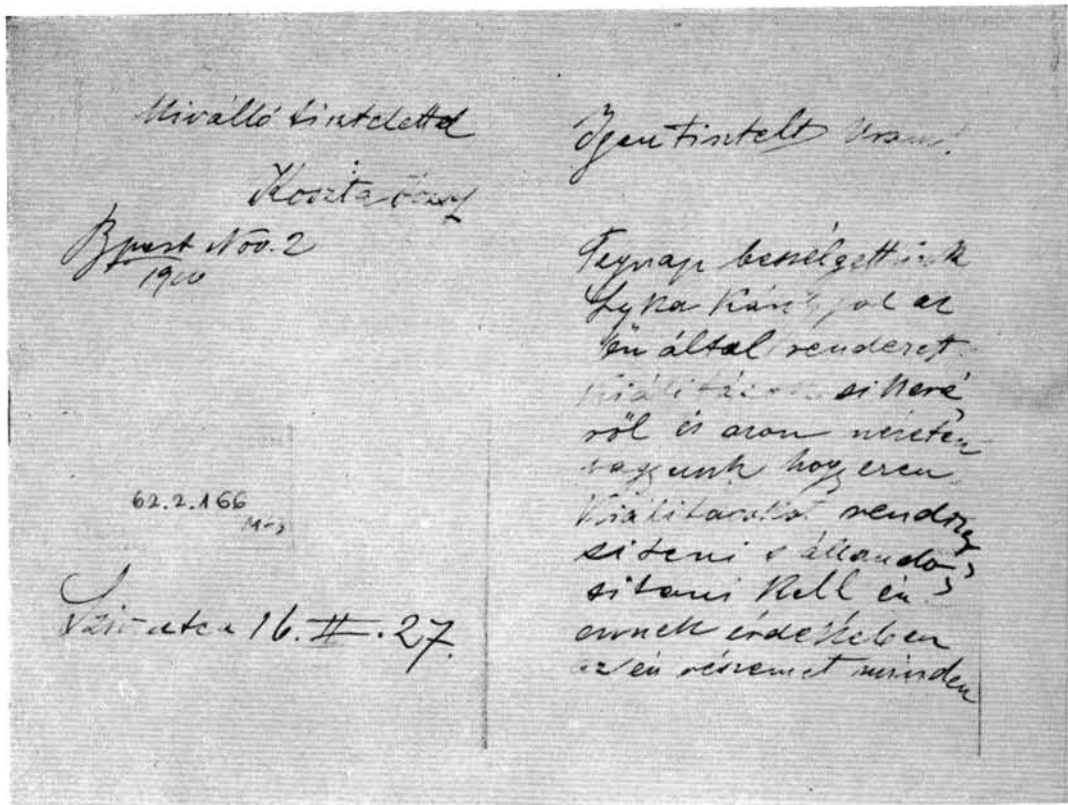 Kiválló tisztelettel
Koszta József
Bpest Nov. 2
1900
62.2.166
Sziv utca 16. II. 27.
Igen Tisztelt Uram!
Tegnap beszélgettünk
Lyka Károlyal az
Ön által rendezett
kiálitások sikeré
ről és azon nézeten
vagyunk hogy ezen
kiálitásokat rendsze,
siteni s állandó,
sitani kell én
ennek érdekében
az én részemet minden